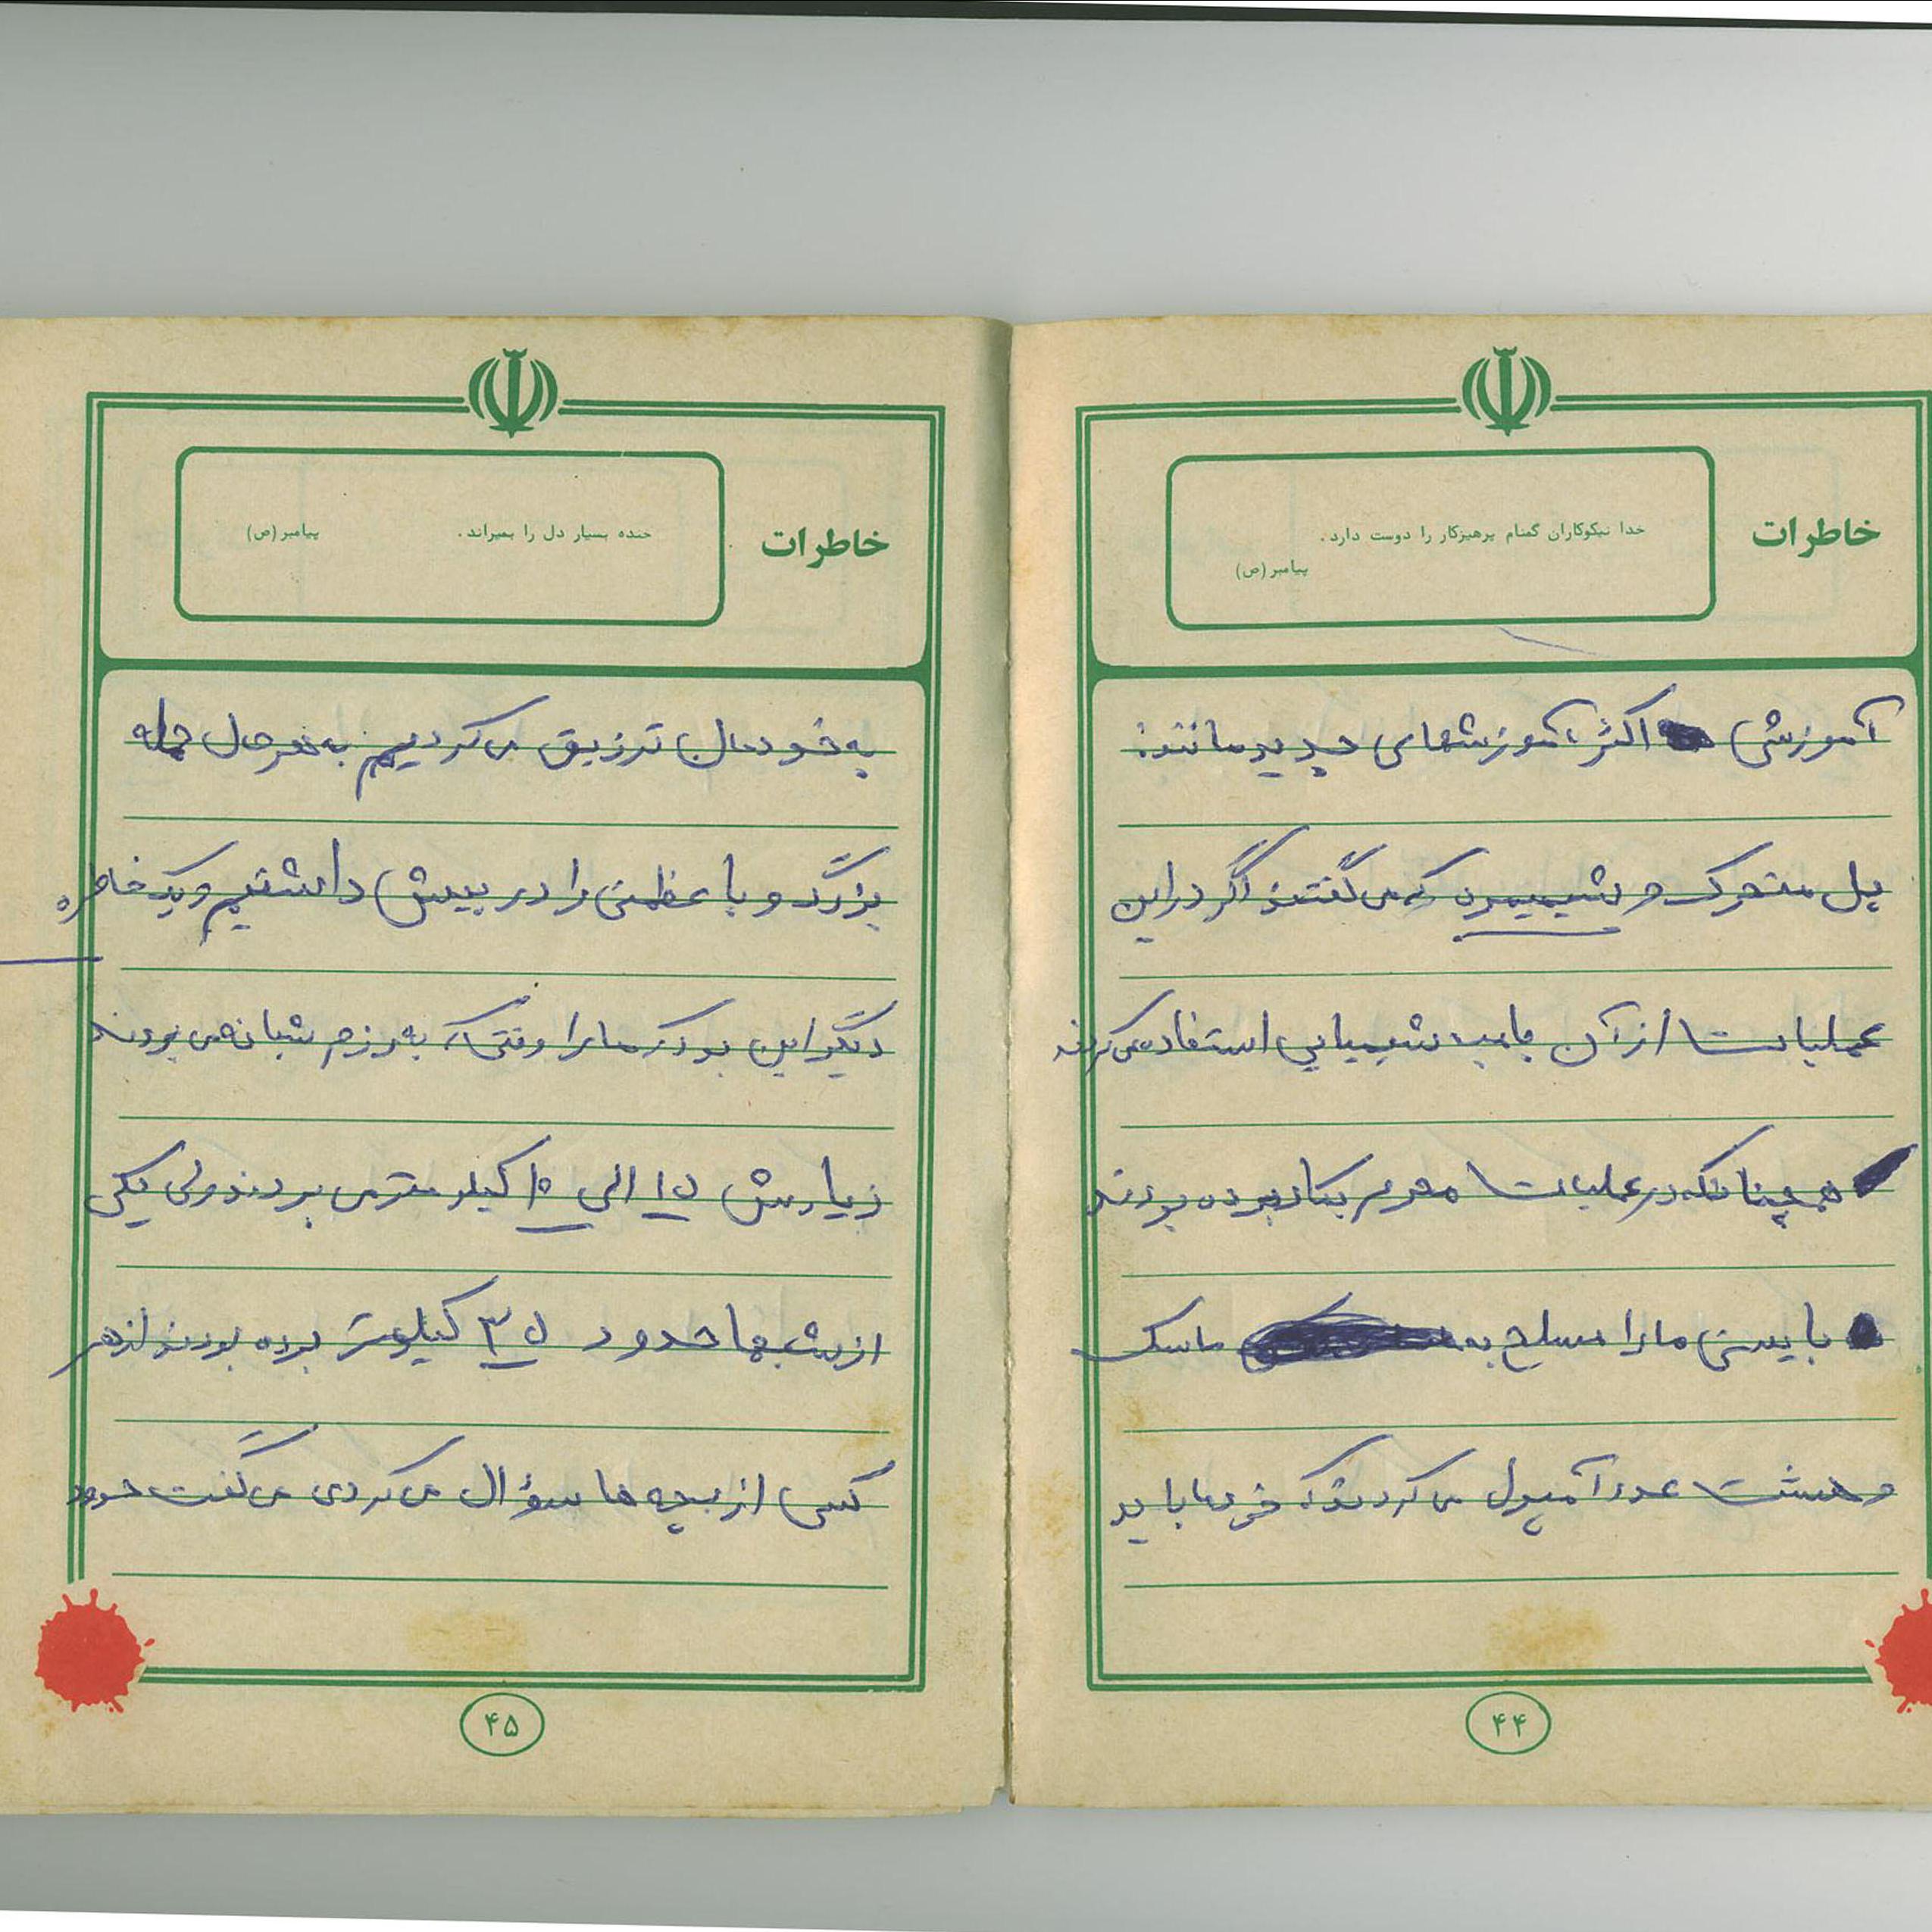 خاطرات
خدا نیکوکاران گمنام پرهیزکار را دوست دارد.
پیامبر (ص)
آموزشی اکثر آموزشهای جدید مانند:
پل متحرک و شیمیری که می گفتند اگر در این
عملیات از آن بامب شیمیایی استفاده می کردند
همچنانکه در عملیات محرم بکار برده بودند
بایستی ما را مسلح به ماسک
و هشت عدد آمپول می کردند که خودما باید
۴۴
خاطرات
خنده بسیار دل را بمیراند. پیامبر (ص)
به خودمان تزریق می کردیم به هر حال حمله
بزرگ و با عظمتی را در پیش داشتیم و یک خاطره
دیگر این بود که ما را وقتی که به رزم شبانه می بردند
زیادش ۱۵ الی ۱۰ کیلومتر می بردند ولی یکی
از شبها حدود ۳۵ کیلومتر برده بودند از هر
کسی از بچه ها سؤال می کردی می گفت حدود
۴۵